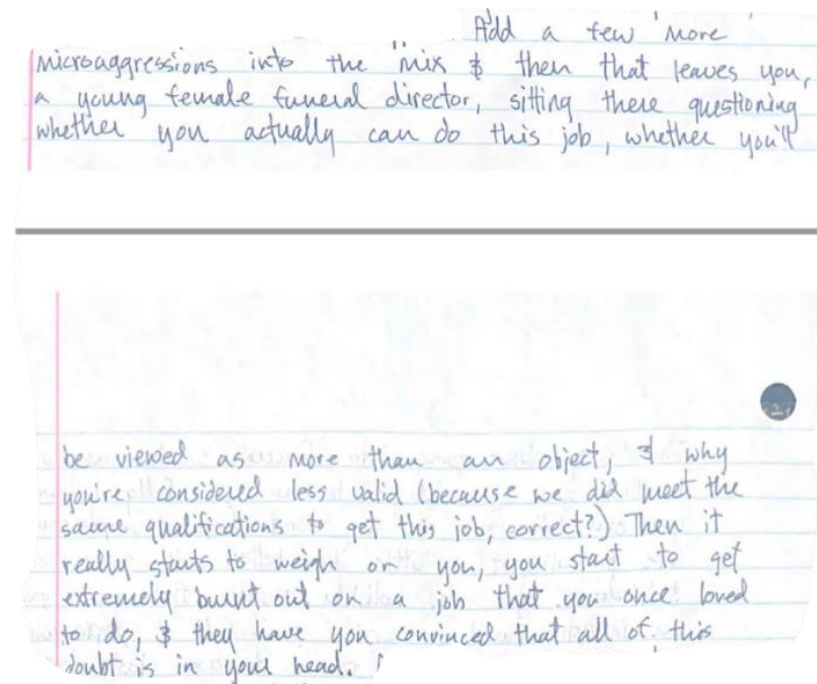 Add a few more
microaggressions into the mix & then that leaves you,
a young female funeral director, sitting there questioning
whether you actually can do this job, whether you'll
be viewed as more than an object, & why
you're considered less valid (because we did meet the
same qualifications to get this job, correct?) Then it
really starts to weigh on you, you start to get
extremely burnt out on a job that you once loved
to do, & they have you convinced that all of this
doubt is in your head.